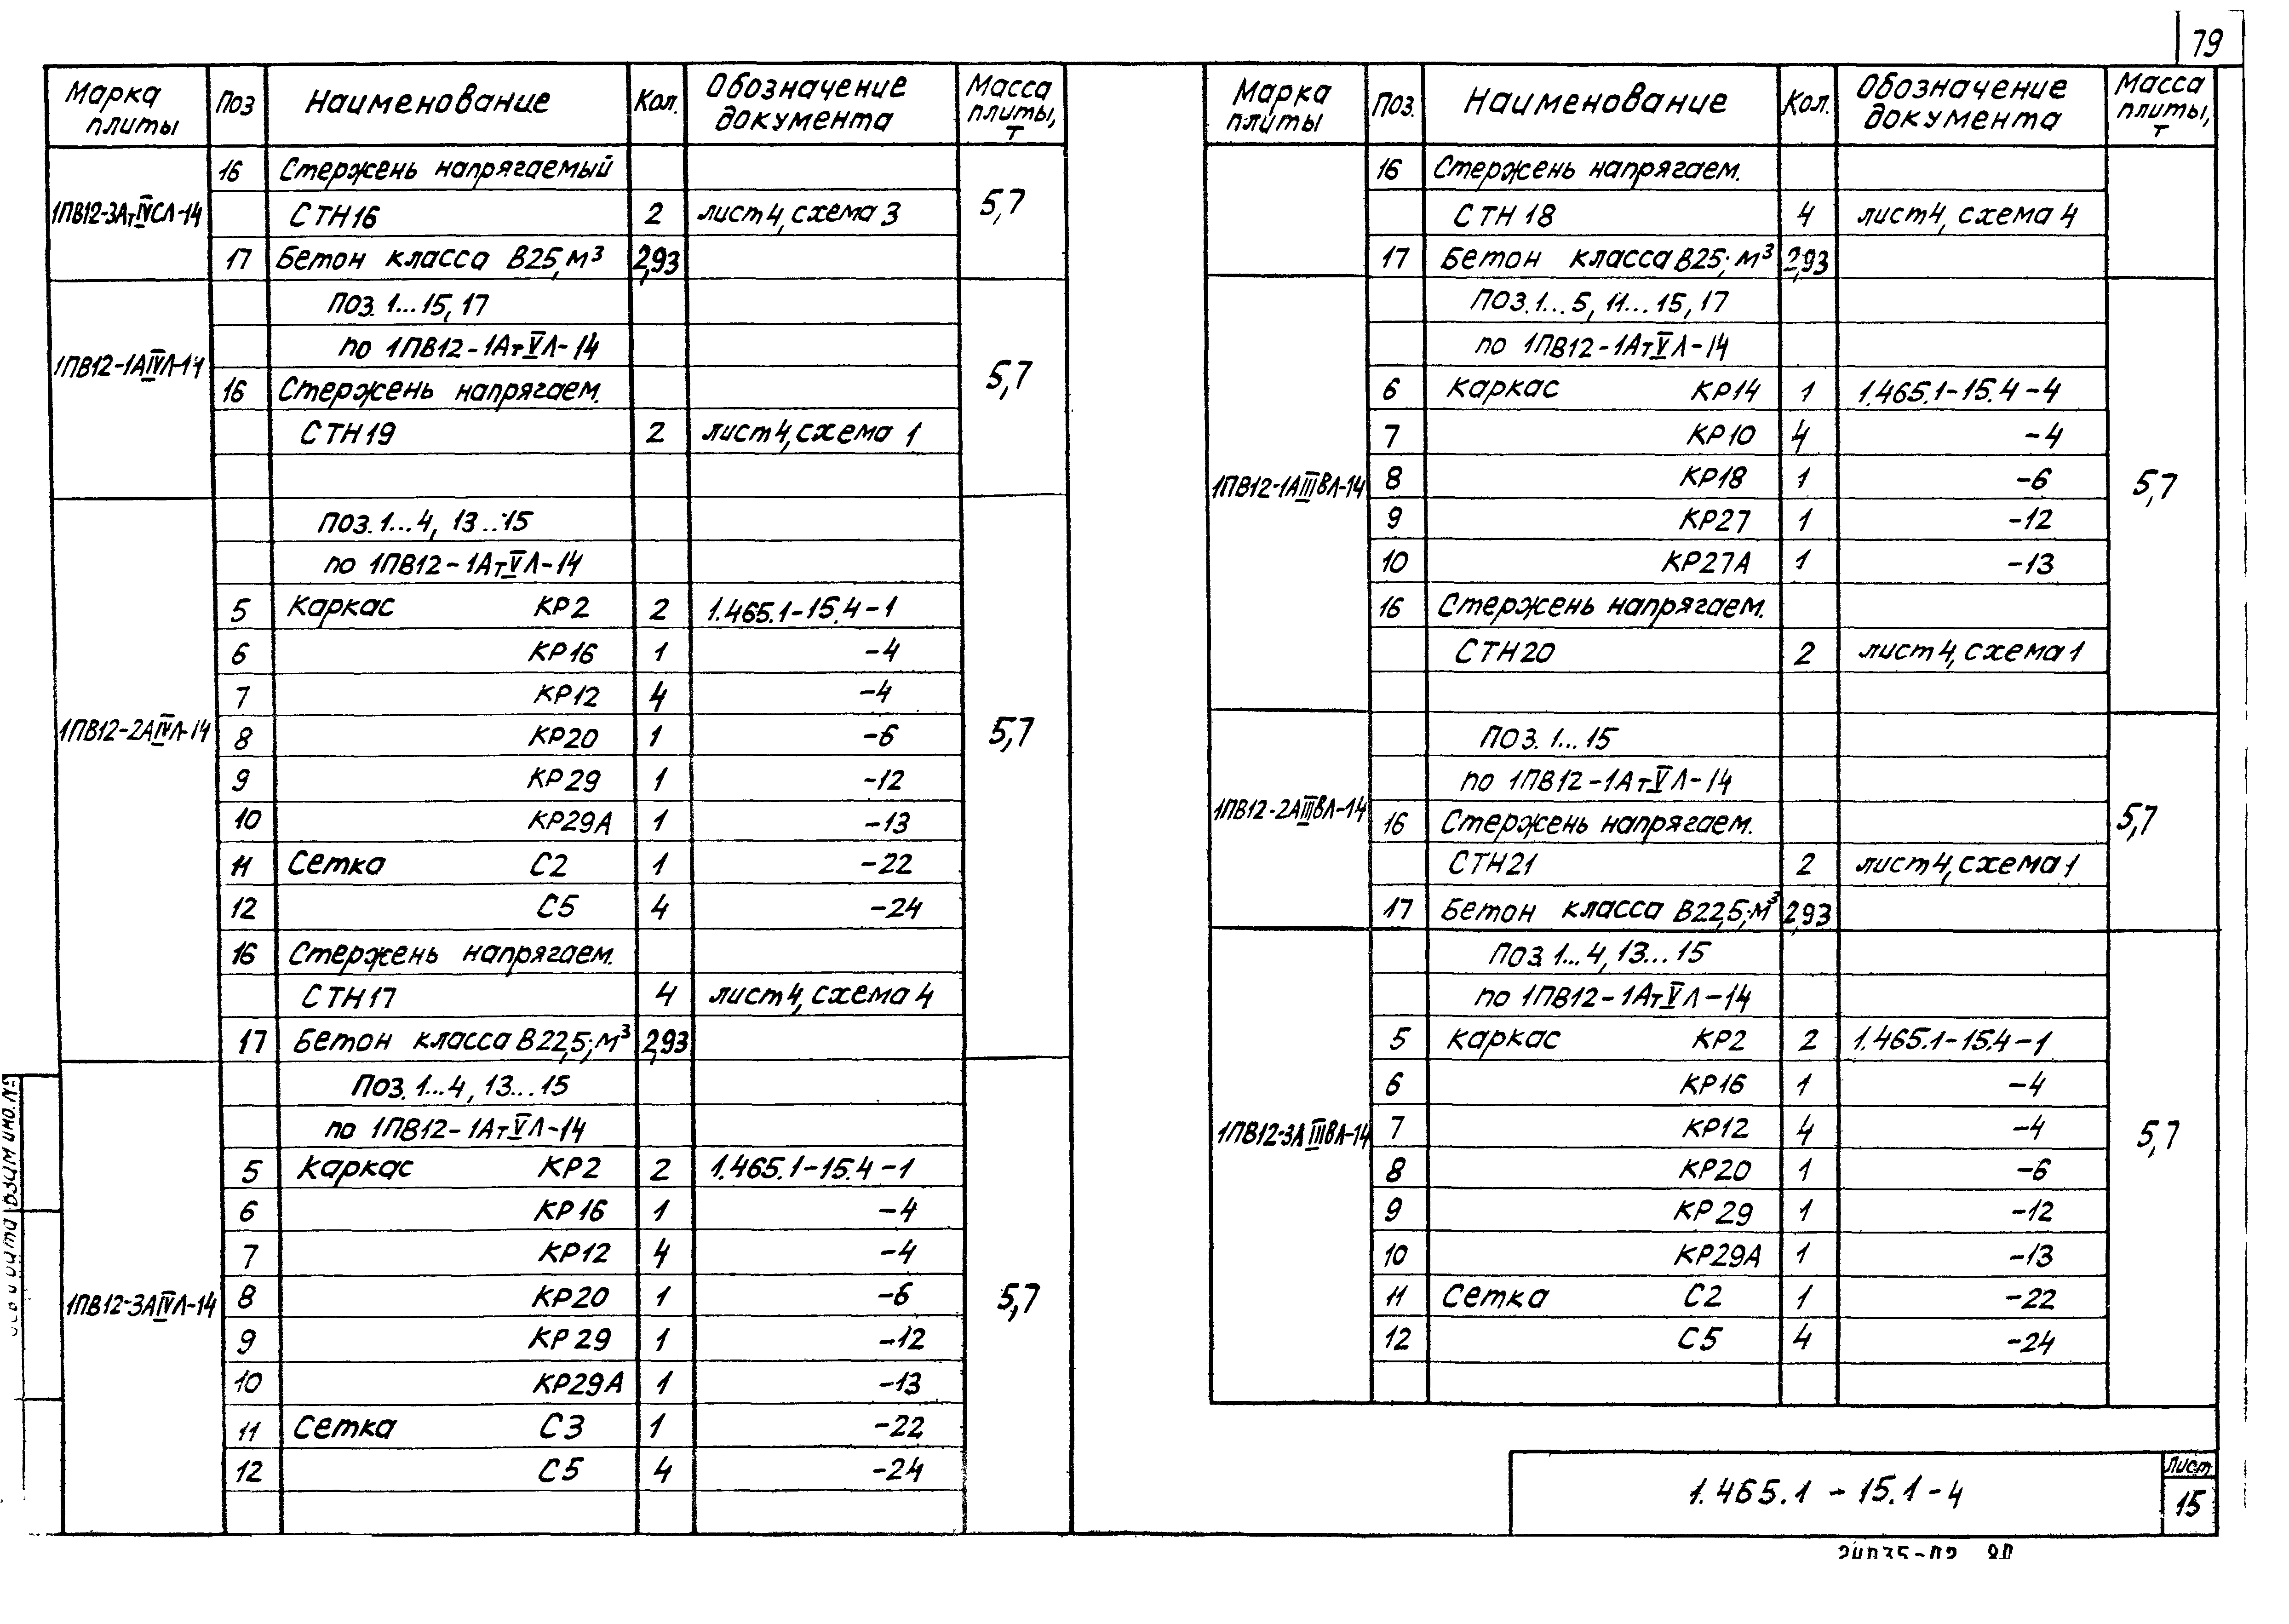 79
Марка плиты Поз Наименование Кол. Обозначение документа Масса плиты, т
1ПВ12-3АтIVСЛ-14 5,7
16 Стержень напрягаемый
СТН16 2 лист 4, схема 3
17 Бетон класса В25, м³ 2,93
1ПВ12-1АIVЛ-14 5,7
Поз. 1...15, 17
по 1ПВ12-1АтVЛ-14
16 Стержень напрягаем.
СТН19 2 лист 4, схема 1
1ПВ12-2АIVЛ-14 5,7
Поз. 1...4, 13...15
по 1ПВ12-1АтVЛ-14
5 Каркас КР2 2 1.465.1-15.4-1
6 КР16 1 -4
7 КР12 4 -4
8 КР20 1 -6
9 КР29 1 -12
10 КР29А 1 -13
11 Сетка С2 1 -22
12 С5 4 -24
16 Стержень напрягаем.
СТН17 4 лист 4, схема 4
17 Бетон класса В22,5; м³ 2,93
1ПВ12-3АIVЛ-14 5,7
Поз. 1...4, 13...15
по 1ПВ12-1АтVЛ-14
5 Каркас КР2 2 1.465.1-15.4-1
6 КР16 1 -4
7 КР12 4 -4
8 КР20 1 -6
9 КР29 1 -12
10 КР29А 1 -13
11 Сетка С3 1 -22
12 С5 4 -24
Марка плиты Поз. Наименование Кол. Обозначение документа Масса плиты, т
16 Стержень напрягаем.
СТН18 4 лист 4, схема 4
17 Бетон класса В25; м³ 2,93
1ПВ12-1АIIIвЛ-14 5,7
Поз. 1...5, 11...15, 17
по 1ПВ12-1АтVЛ-14
6 Каркас КР14 1 1.465.1-15.4-4
7 КР10 4 -4
8 КР18 1 -6
9 КР27 1 -12
10 КР27А 1 -13
16 Стержень напрягаем.
СТН20 2 лист 4, схема 1
1ПВ12-2АIIIвЛ-14 5,7
Поз. 1...15
по 1ПВ12-1АтVЛ-14
16 Стержень напрягаем.
СТН21 2 лист 4, схема 1
17 Бетон класса В22,5; м³ 2,93
1ПВ12-3АIIIвЛ-14 5,7
Поз 1...4, 13...15
по 1ПВ12-1АтVЛ-14
5 Каркас КР2 2 1.465.1-15.4-1
6 КР16 1 -4
7 КР12 4 -4
8 КР20 1 -6
9 КР29 1 -12
10 КР29А 1 -13
11 Сетка С2 1 -22
12 С5 4 -24
1.465.1-15.1-4
Лист
15